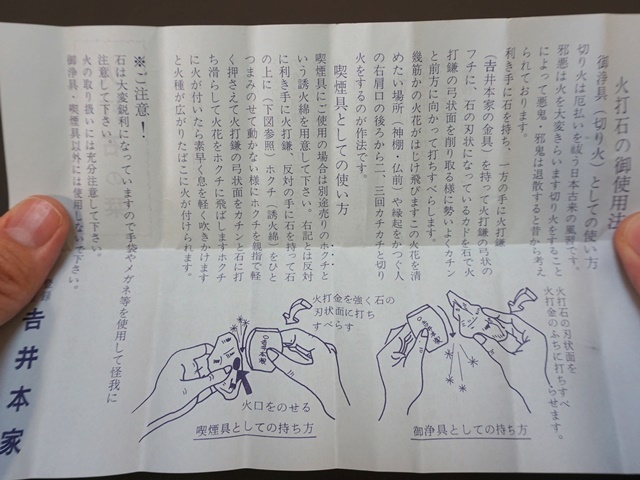 火打石の御使用法
御浄具(切り火)としての使い方
切り火は厄払いを祓う日本古来の風習です。
邪悪は火を大変きらいます切り火をすること
によって悪鬼、邪鬼は退散すると昔から考え
られております。
利き手に石を持ち、一方の手に火打鎌
(吉井本家の金具)を持って火打鎌の弓状の
フチに、石の刃状になっているカドを石で火
打鎌の弓状面を削り取る様に勢いよくカチン
と前方に向かって打ちすべらします。
幾筋かの火花がはじけ飛びますこの火花を清
めたい場所(神棚・仏前)や縁起をかつぐ人
の右肩口の後ろから二、三回カチカチと切り
火をするのが作法です。
喫煙具としての使い方
喫煙具にご使用の場合は別途売りのホクチと
いう誘火綿を用意して下さい。右記とは反対
に利き手に火打鎌、反対の手に石を持って石
の上に(下図参照)ホクチ(誘火綿)をひと
つまみのせて動かない様とホクチを親指で軽
く押さえて火打鎌の弓状面をカチンと石に打
ち滑らして火花をホクチに飛ばしますホクチ
に火が付いたら素早く息を軽く吹きかけます
と火種が広がりたばこに火が付けられます。
※ご注意!
石は大変鋭利になっていますので手袋やメガネ等を使用して怪我に
注意して下さい。
火の取り扱いには充分注意して下さい。
御浄具・喫煙具以外には使用しないで下さい。
吉井本家
火打石の刃状面を
火打金のふちに打ちすべ
らせます。
御浄具としての持ち方
火打金を強く石の
刃状面に打ち
すべらす
火口をのせる
喫煙具としての持ち方